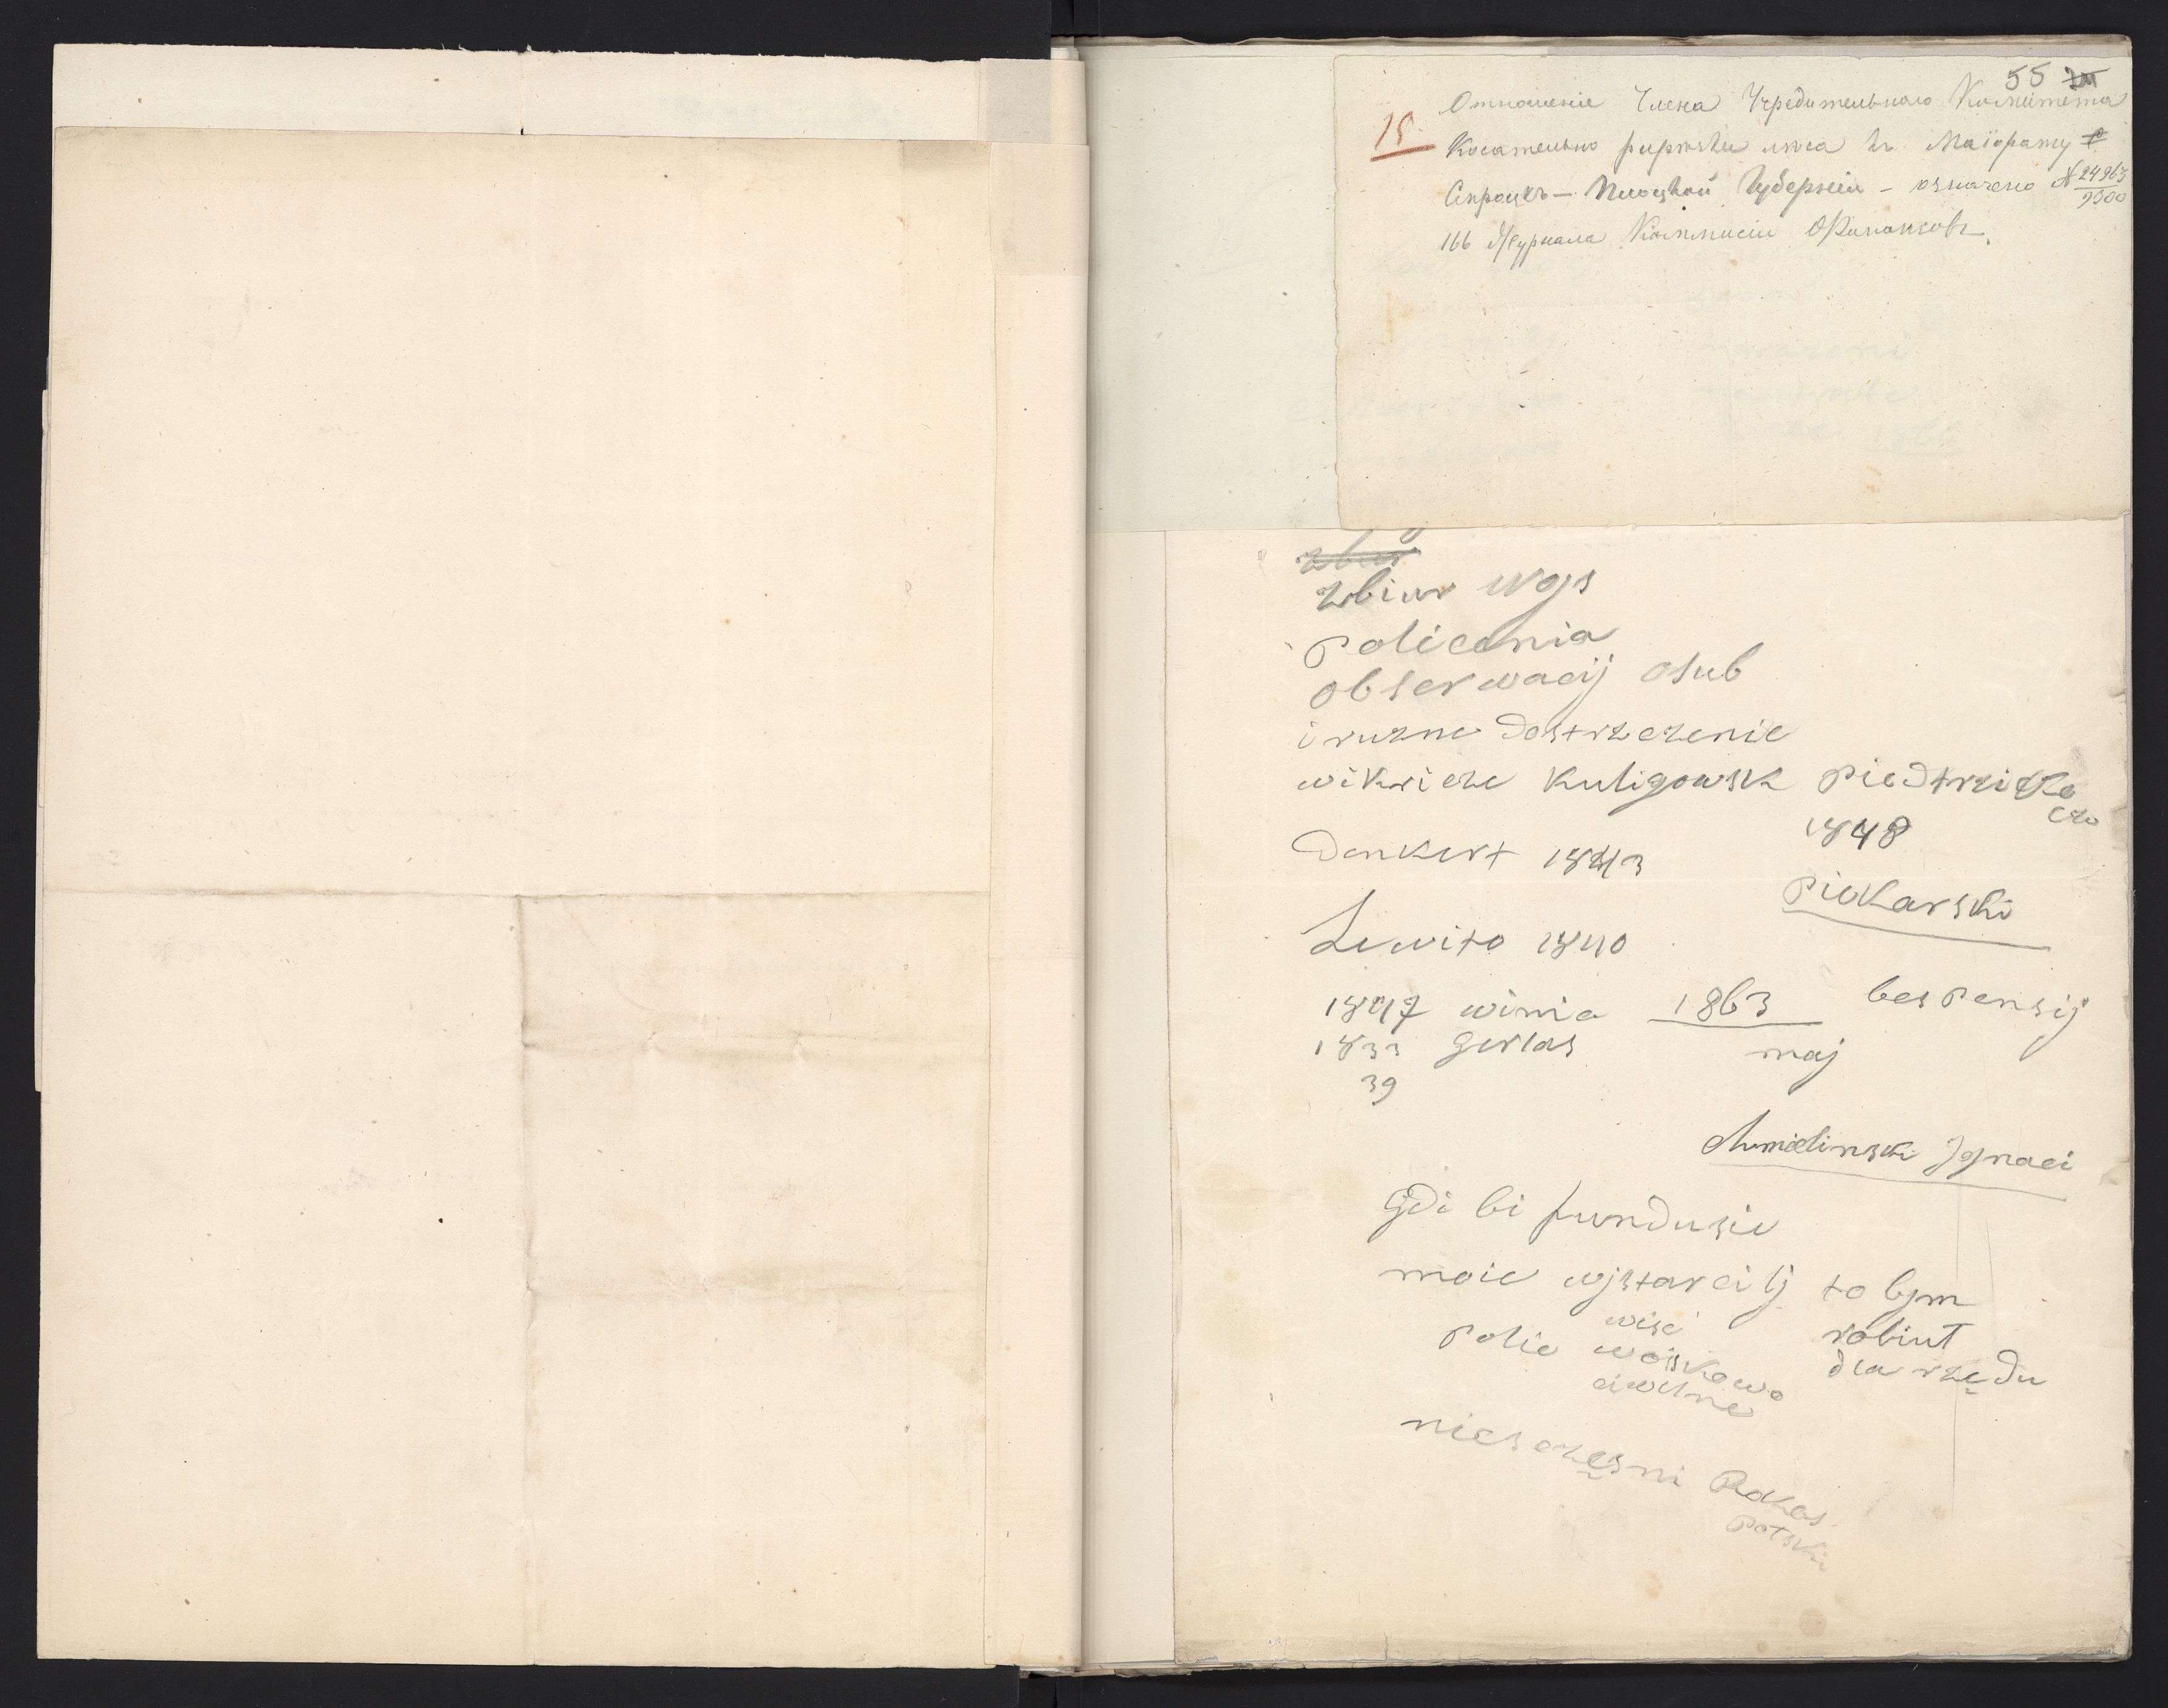 55
15.
Отношеніе Члена Учредительнаго Комитета
Касательно лѣса къ Маіорату
Сероцкъ — Плоцкой Губерніи — означено № 24963/9300
166 Журнала Коммисіи Финансовъ.
zbiur
zbiur wgs
policania
obserwacij osub
i ruzne dostrzezenie
wikricze Kuligowsk
1848
Denkert 1843
Piekarski
Lewito 1840
1847 winia 1863 bes Pensij
1833 gerlas maj
39
Chmielinski Jgnaci
gdi bi fundusie
moie wjstarcilj to bym
robiuł
wise
Polic woiskowo
dla rzędu
ciwilne
niesczęsni Rokos
Polski